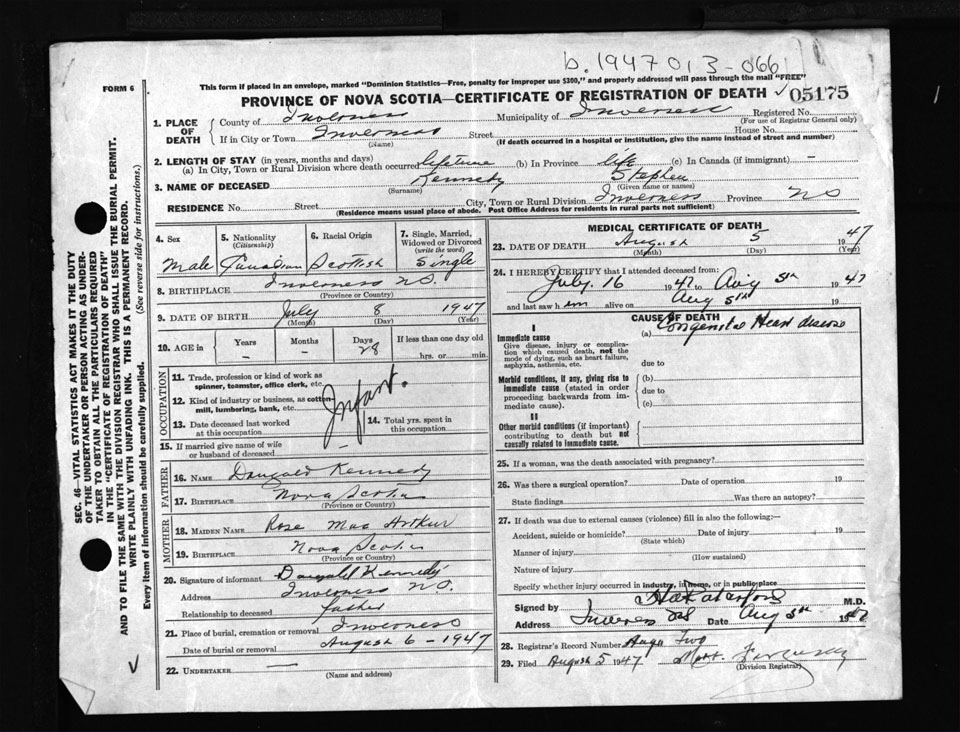 b. 1947 013-066
FORM 6
This form if placed in an envelope, marked "Dominion Statistics—Free, penalty for improper use $300," and properly addressed will pass through the mail "FREE"
PROVINCE OF NOVA SCOTIA—CERTIFICATE OF REGISTRATION OF DEATH ✓ 05175
1. PLACE OF DEATH
County of Inverness Municipality of Inverness Registered No.
(For use of Registrar General only)
If in City or Town Inverness Street House No.
(Name) (If death occurred in a hospital or institution, give the name instead of street and number)
2. LENGTH OF STAY (in years, months and days)
(a) In City, Town or Rural Division where death occurred lifetime (b) In Province life (c) In Canada (if immigrant) —
3. NAME OF DECEASED Kennedy Stephen
(Surname) (Given name or names)
RESIDENCE No. Street City, Town or Rural Division Inverness Province N S
(Residence means usual place of abode. Post Office Address for residents in rural parts not sufficient)
4. Sex Male
5. Nationality (Citizenship) Canadian
6. Racial Origin Scottish
7. Single, Married, Widowed or Divorced (write the word) Single
8. BIRTHPLACE Inverness N.S.
(Province or Country)
9. DATE OF BIRTH July 8 1947
(Month) (Day) (Year)
10. AGE in Years Months Days If less than one day old
— — 28 hrs. or min.
OCCUPATION
11. Trade, profession or kind of work as spinner, teamster, office clerk, etc.
12. Kind of industry or business, as cotton-mill, lumbering, bank, etc.
Infant.
13. Date deceased last worked at this occupation
14. Total yrs. spent in this occupation
15. If married give name of wife or husband of deceased —
FATHER
16. NAME Dougald Kennedy
17. BIRTHPLACE Nova Scotia
(Province or Country)
MOTHER
18. MAIDEN NAME Rose Mac Arthur
19. BIRTHPLACE Nova Scotia
(Province or Country)
20. Signature of informant Dougald Kennedy
Address Inverness N.S.
Relationship to deceased father
21. Place of burial, cremation or removal Inverness
Date of burial or removal August 6 - 1947
22. UNDERTAKER —
(Name and address)
MEDICAL CERTIFICATE OF DEATH
23. DATE OF DEATH August 5 1947
(Month) (Day) (Year)
24. I HEREBY CERTIFY that I attended deceased from:
July. 16 1947 to Aug 5th 1947
and last saw him alive on Aug 5th
CAUSE OF DEATH
I
Immediate cause (a) Congenital Heart disease
Give disease, injury or complication which caused death, not the mode of dying, such as heart failure, asphyxia, asthenia, etc.
due to
Morbid conditions, if any, giving rise to immediate cause (stated in order proceeding backwards from immediate cause).
(b)
due to
(c)
II
Other morbid conditions (if important) contributing to death but not causally related to immediate cause.
25. If a woman, was the death associated with pregnancy?
26. Was there a surgical operation? Date of operation 19
State findings Was there an autopsy?
27. If death was due to external causes (violence) fill in also the following:—
Accident, suicide or homicide? Date of injury 19
(State which)
Manner of injury
(How sustained)
Nature of injury
Specify whether injury occurred in industry, in home, or in public place
Signed by M.D.
Address Inverness NS Date Aug 5th 1947
28. Registrar's Record Number Two
29. Filed August 5 1947
(Division Registrar)
SEC. 46—VITAL STATISTICS ACT MAKES IT THE DUTY
OF THE UNDERTAKER OR PERSON ACTING AS UNDER-
TAKER TO OBTAIN ALL THE PARTICULARS REQUIRED
IN THE "CERTIFICATE OF REGISTRATION OF DEATH"
AND TO FILE THE SAME WITH THE DIVISION REGISTRAR WHO SHALL ISSUE THE BURIAL PERMIT.
WRITE PLAINLY WITH UNFADING INK. THIS IS A PERMANENT RECORD.
Every item of information should be carefully supplied. (See reverse side for instructions.)
✓